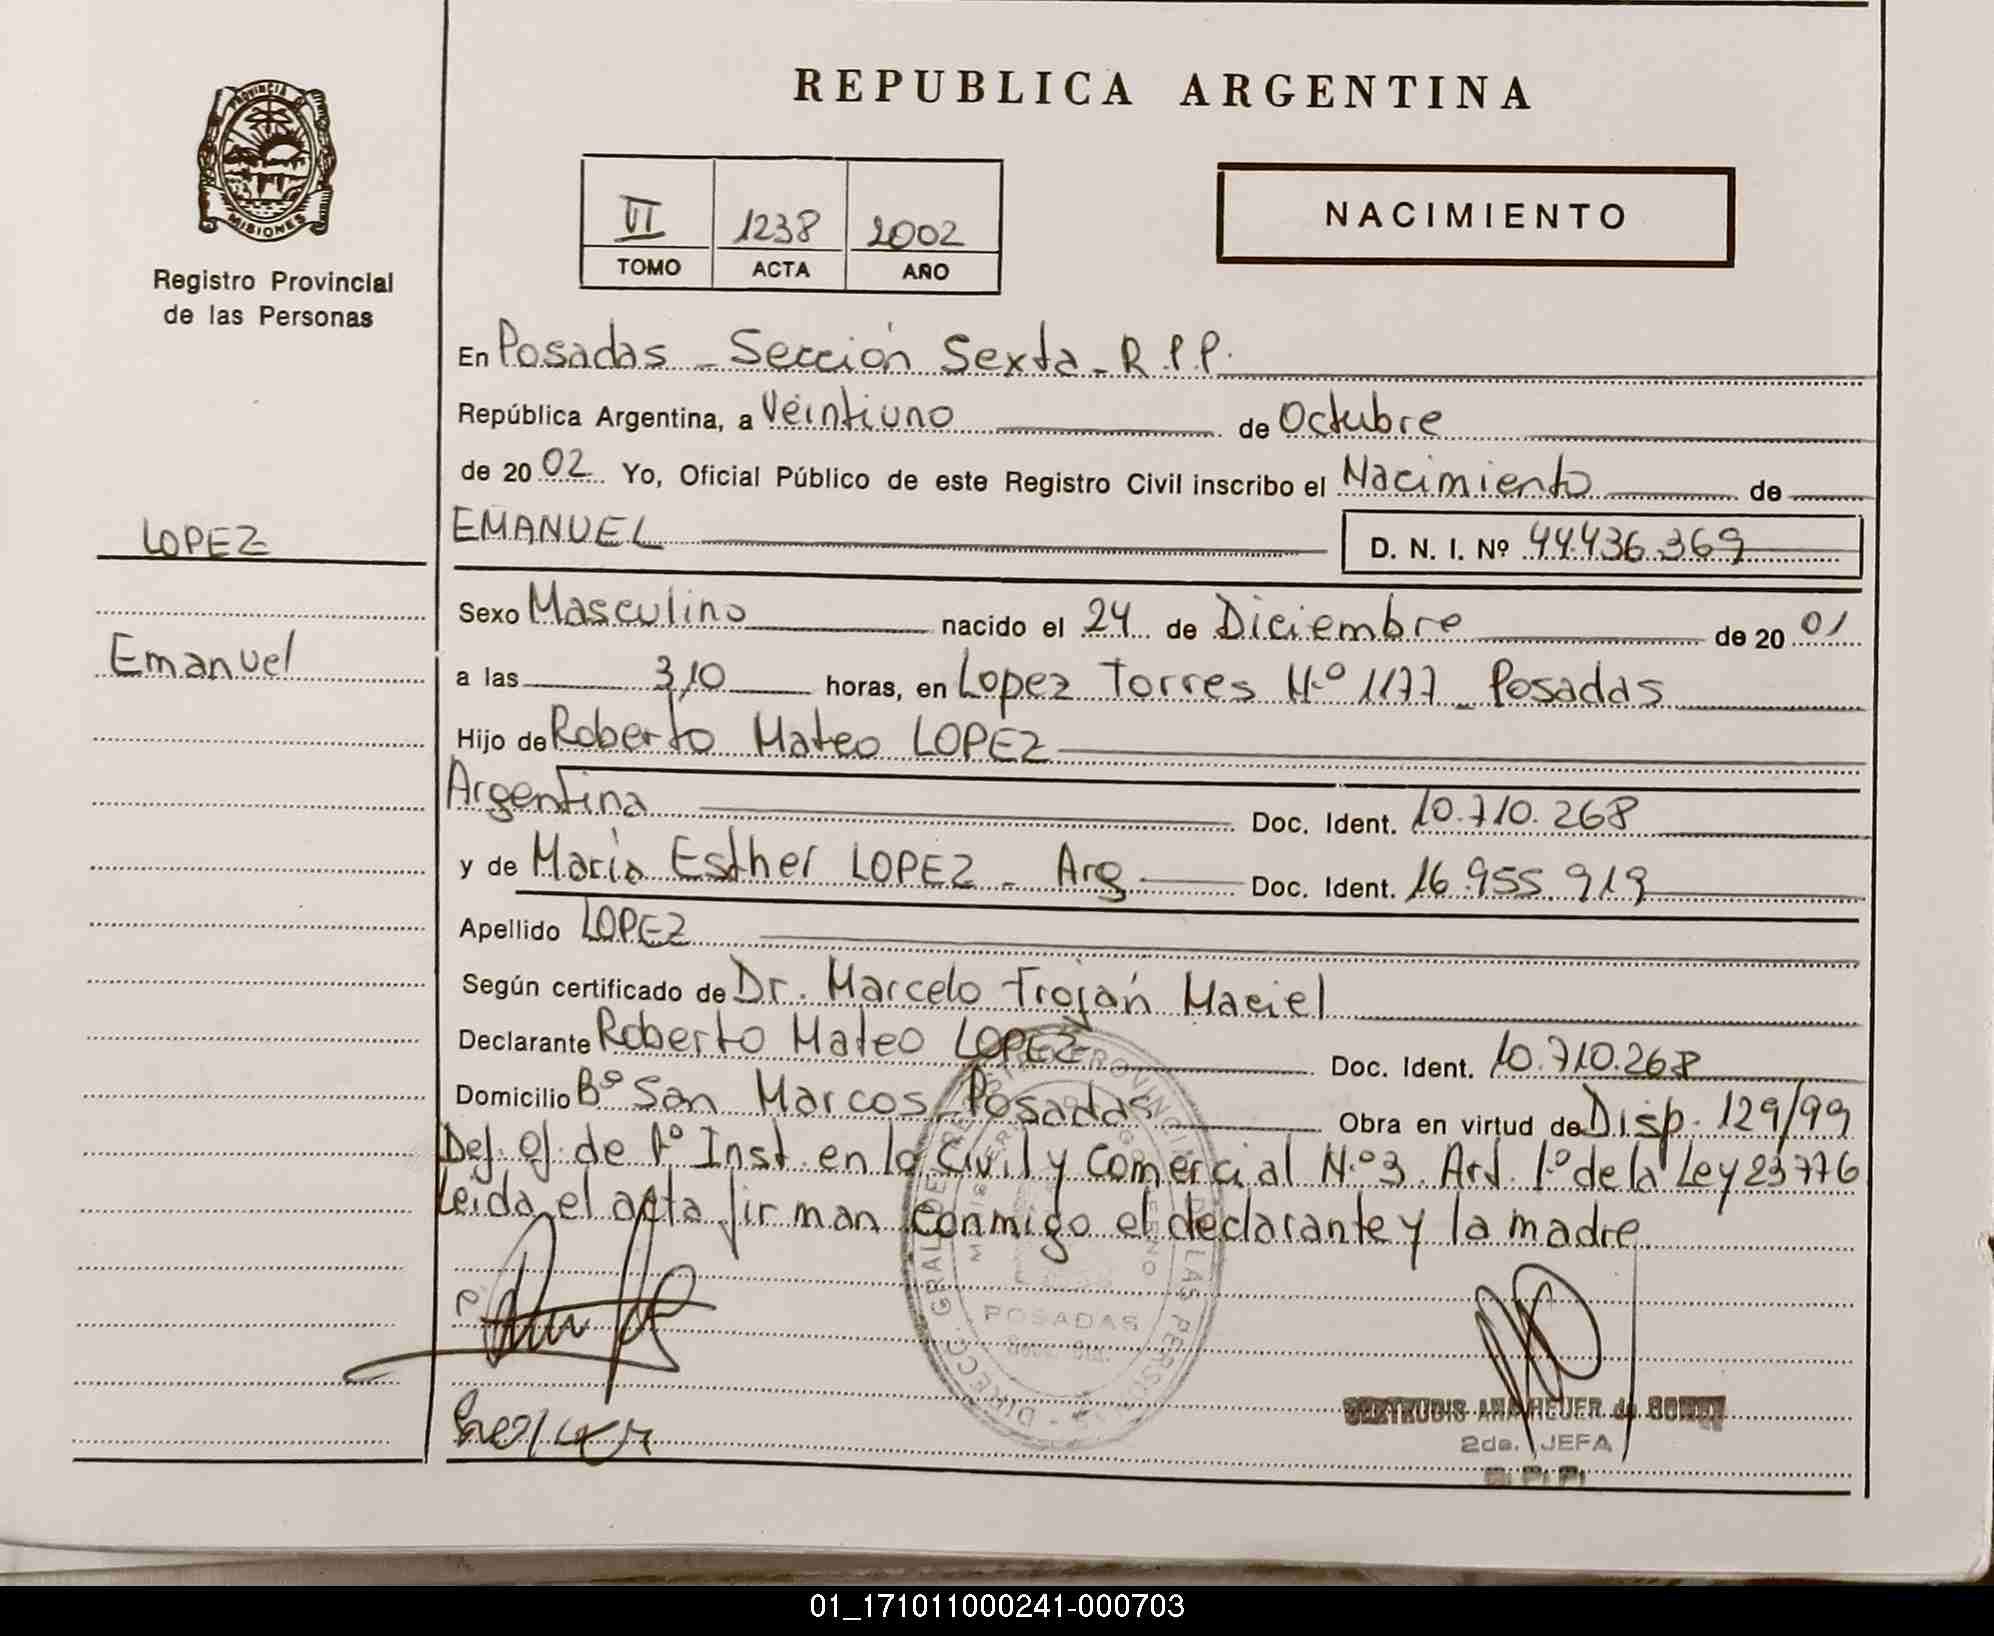 REPUBLICA ARGENTINA
PROVINCIA D
MISIONES
Registro Provincial
de las Personas
VI 1238 2002
TOMO ACTA AÑO
NACIMIENTO
En Posadas - Sección Sexta - R.P.P.
República Argentina, a Veintiuno de Octubre
de 2002. Yo, Oficial Público de este Registro Civil inscribo el Nacimiento de
LOPEZ
EMANUEL D. N. I. Nº 44.436.369
Sexo Masculino nacido el 24 de Diciembre de 2001
Emanuel
a las 3,10 horas, en Lopez Torres N.º 1177 - Posadas
Hijo de Roberto Mateo LOPEZ
Argentina Doc. Ident. 10.710.268
y de Maria Esther LOPEZ - Arg Doc. Ident. 16.955.919
Apellido LOPEZ
Según certificado de Dr. Marcelo Troján Maciel
Declarante Roberto Mateo LOPEZ Doc. Ident. 10.710.268
Domicilio Bº San Marcos - Posadas Obra en virtud de Disp. 129/99
Def. Of. de 1º Inst. en lo Civil y Comercial N.º 3. Art. 1.º de la Ley 23776
Leida el acta firman conmigo el declarante y la madre
POSADAS
GERTRUDIS ANA HEUER de
2da. JEFA
R. P. P.
01_171011000241-000703